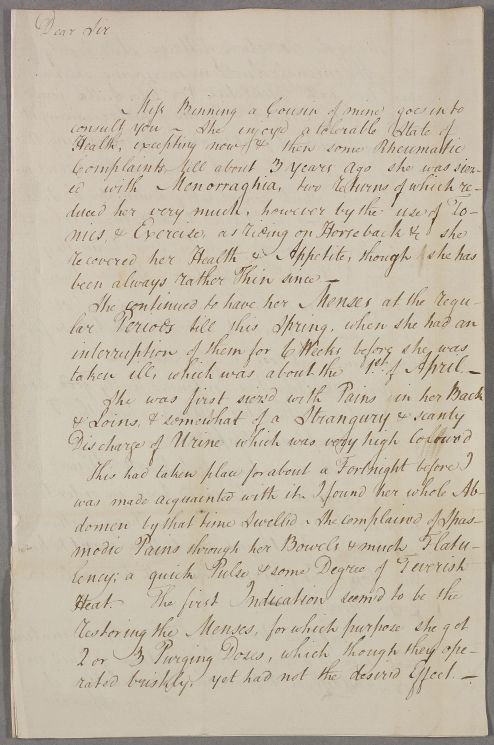 Dear Sir
Miss Binning a Cousin of mine goes in to
consult you — She enjoy'd a tolerable State of
Health, excepting now & then some Rheumatic
Complaints till about 3 years ago she was siez-
ed with Menorraghia, two returns of which re-
duced her very much, however by the use of To-
nics, & Exercise, as riding on Horseback &c she
recovered her Health & Appetite, though she has
been always rather Thin since —
She continued to have her Menses at the regu-
lar Periods till this Spring, when she had an
interruption of them for 6 Weeks, before she was
taken ill, which was about the 1st of April —
She was first siezd with Pains in her Back
& Loins, & somewhat of a Strangury & scanty
Discharge of Urine which was very high colourd
This had taken place for about a Fortnight before I
was made acquainted with it. I found her whole Ab-
domen by that time Swelled — She complained of Spas-
modic Pains through her Bowels & much Flatu-
lency; a quick Pulse & some Degree of Feverish
Heat — The first Indication seemd to be the
restoring the Menses, for which purpose she got
2 or 3 Purging Doses, which though they ope-
rated briskly, yet had not the desird Effect. —